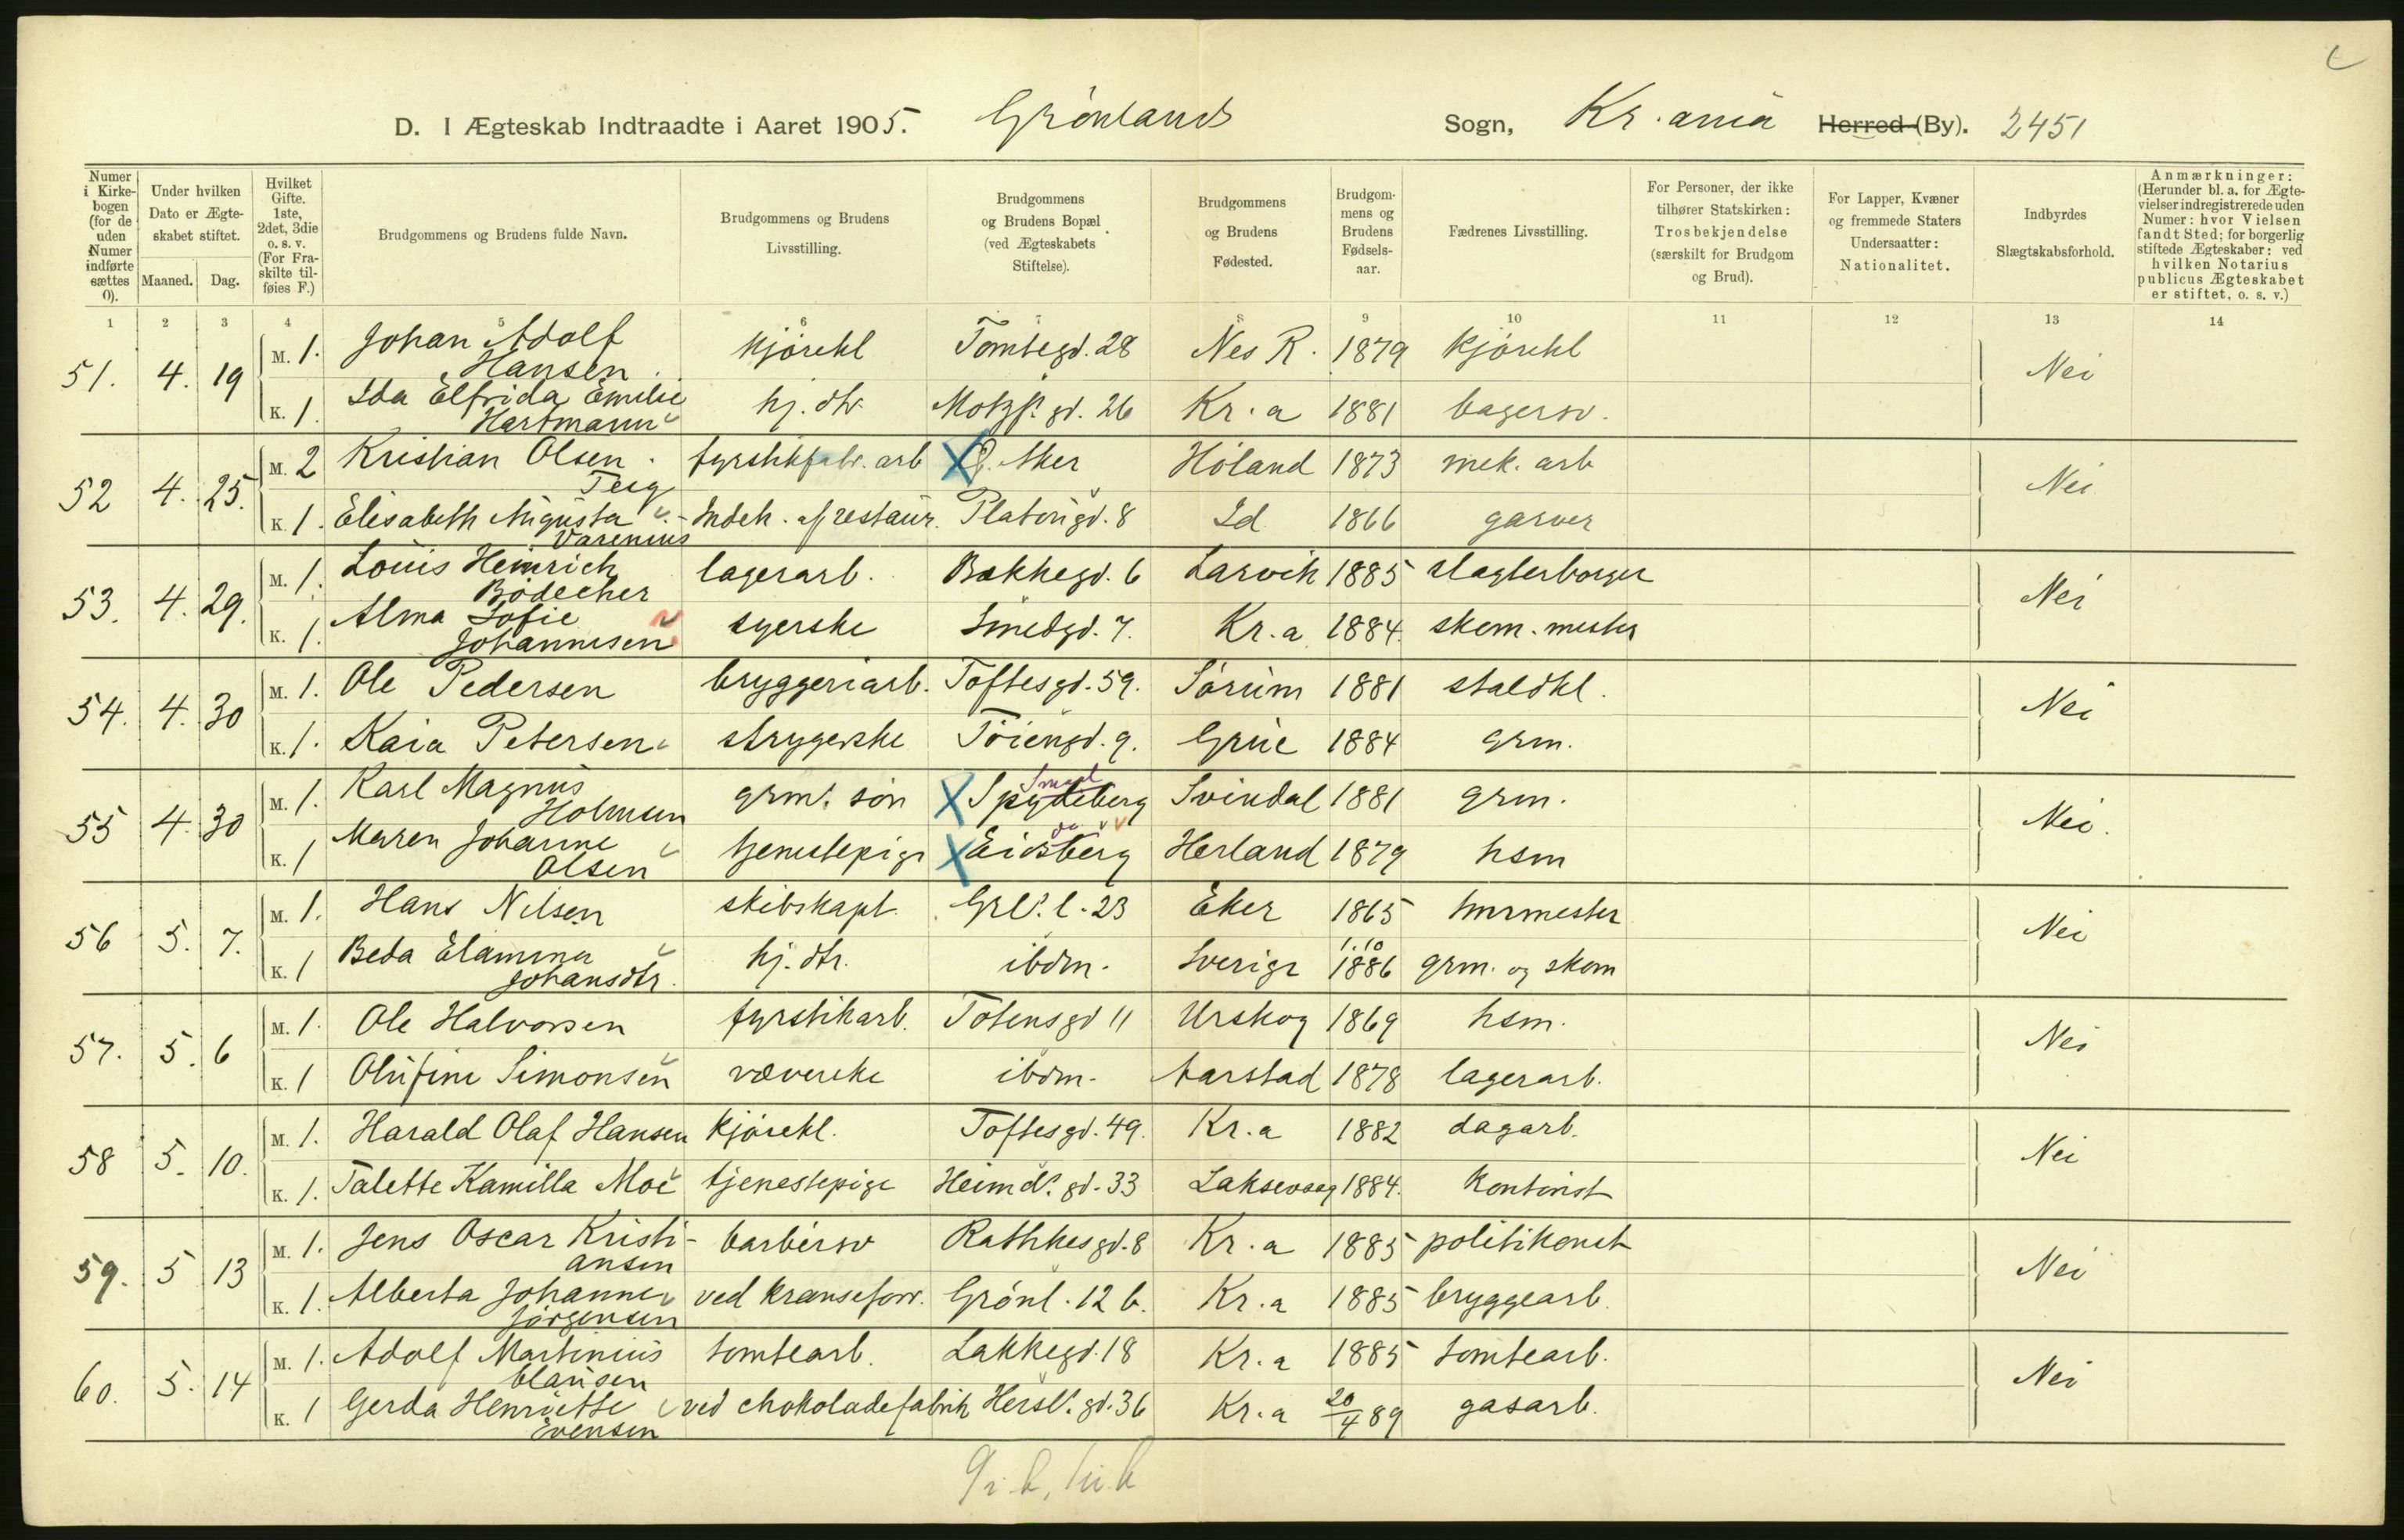 D. I Ægteskab Indtraadte i Aaret 1905. Grönlands Sogn, Kr.ania Herred (By). 2451
Numer i Kirkebogen (for de uden Numer indførte sættes 0).
Under hvilken Dato er Ægteskabet stiftet.
Maaned. Dag.
Hvilket Gifte. 1ste, 2det, 3die o. s. v. (For Fraskilte tilføies F.)
Brudgommens og Brudens fulde Navn.
Brudgommens og Brudens Livsstilling.
Brudgommens og Brudens Bopæl (ved Ægteskabets Stiftelse).
Brudgommens og Brudens Fødested.
Brudgommens og Brudens Fødselsaar.
Fædrenes Livsstilling.
For Personer, der ikke tilhører Statskirken: Trosbekjendelse (særskilt for Brudgom og Brud).
For Lapper, Kvæner og fremmede Staters Undersaatter: Nationalitet.
Indbyrdes Slægtskabsforhold.
Anmærkninger: (Herunder bl. a. for Ægtevielser indregistrerede uden Numer: hvor Vielsen fandt Sted; for borgerlig stiftede Ægteskaber: ved hvilken Notarius publicus Ægteskabet er stiftet, o. s. v.)
1 2 3 4 5 6 7 8 9 10 11 12 13 14
51. 4. 19 M. 1. Johan Adolf Hansen kjørekl Tomtegd. 28 Nes R. 1879 kjørekl Nei
K. 1. Ida Elfrida Emilie Hartmann hj. dtr. Motzf. gd. 26 Kr.a 1881 bagersv.
52 4. 25. M. 2 Kristian Olsen Teig fyrstikfabr. arb Ø. Aker Höland 1873 mek. arb Nei
K. 1. Elisabeth Augusta Varenius Indeh. af restaur. Platöugd. 8 Id 1866 garver
53. 4. 29. M. 1. Louis Heinrich Bödecher lagerarb. Bakkegd. 6 Larvik 1885 slagterborger Nei
K. 1. Alma Sofie Johannesen syerske Smedgd. 7. Kr.a 1884. skom. mester
54. 4. 30 M. 1. Ole Pedersen bryggeriarb. Toftesgd. 59. Sörum 1881 staldkl. Nei
K. 1. Kaia Petersen strygerske Töiengd. 9. Grue 1884 grm.
55 4. 30 M. 1. Karl Magnus Holmsen grm. sön Spydeberg Svindal 1881 grm. Nei.
K. 1 Maren Johanne Olsen tjenestepige Eidsberg Herland 1879 hsm
56 5. 7. M. 1. Hans Nilsen skibskapt. Grl. l. 23 Eker 1865 murmester Nei
K. 1 Beda Elamina Johansdtr. hj. dtr. ibdm. Sverige 1.10 1886 grm. og skom
57. 5. 6 M. 1. Ole Halvorsen fyrstikarb. Totensgd 11 Urskog 1869 hsm. Nei
K. 1 Olufine Simonsen væverske ibdm. Aarstad 1878 lagerarb.
58 5. 10. M. 1. Harald Olaf Hansen kjørekl. Toftesgd. 49. Kr.a 1882 dagarb. Nei
K. 1. Talette Kamilla Moe tjenestepige Heimd. gd. 33 Laksevaag 1884. kontorist
59. 5 13 M. 1. Jens Oscar Kristi-ansen barbersv Rathkesgd. 8 Kr.a 1885 politikonst Nei
K. 1. Alberta Johanne Jörgensen ved kranseforr. Grönl. 12 b. Kr.a 1885 bryggearb.
60. 5. 14 M. 1. Adolf Martinius Clausen tomtearb. Lakkegd. 18 Kr.a 1885 tomtearb. Nei
K. 1 Gerda Henriette Evensen ved chokoladefabrik Hersl. gd. 36 Kr.a 20/4 89 gasarb.